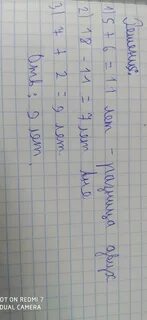 Решение:
1) 5 + 6 = 11 лет - разница двух
2) 18 - 11 = 7 лет Ане
3) 7 + 2 = 9 лет.
Отв: 9 лет.
OT ON REDMI 7
DUAL CAMERA